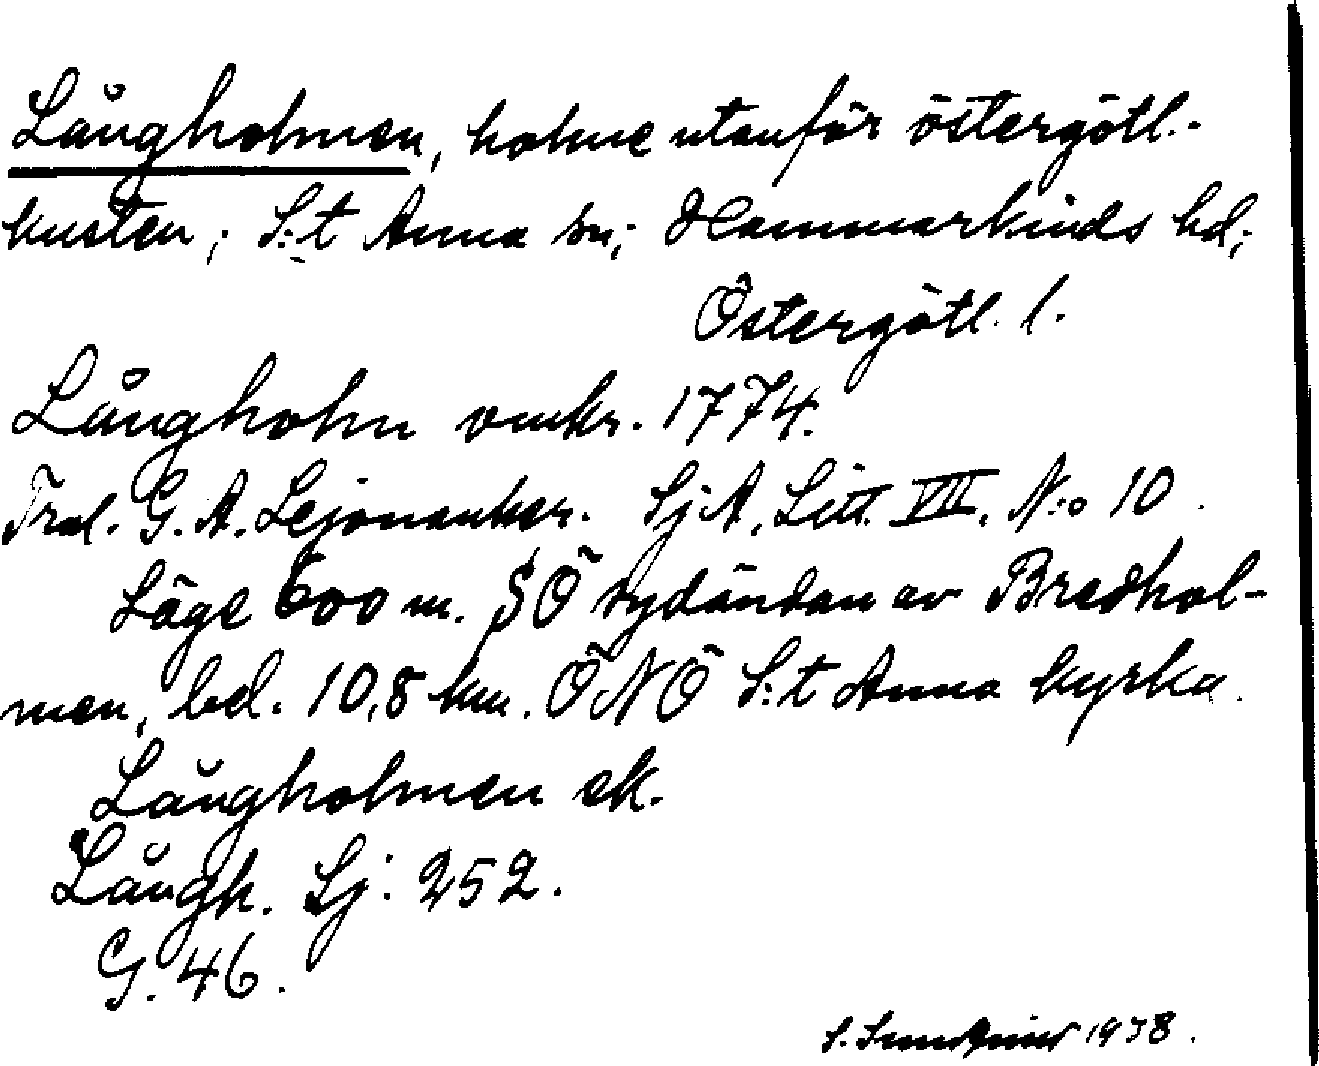 Långholmen, holme utanför östergötl.-
kusten; S:t Anna sn; Hammarkinds hd;
Östergötl. l.
Långholm omkr. 1774.
Trol. G. A. Lejonanker. SjA, Litt. VII. N:o 10.
Läge 600 m. SÖ sydändan av Bredhol-
men, bel. 10,8 km. ÖNÖ S:t Anna kyrka.
Långholmen ek.
Långh. Sj: 252.
G. 46.
S. 1938.